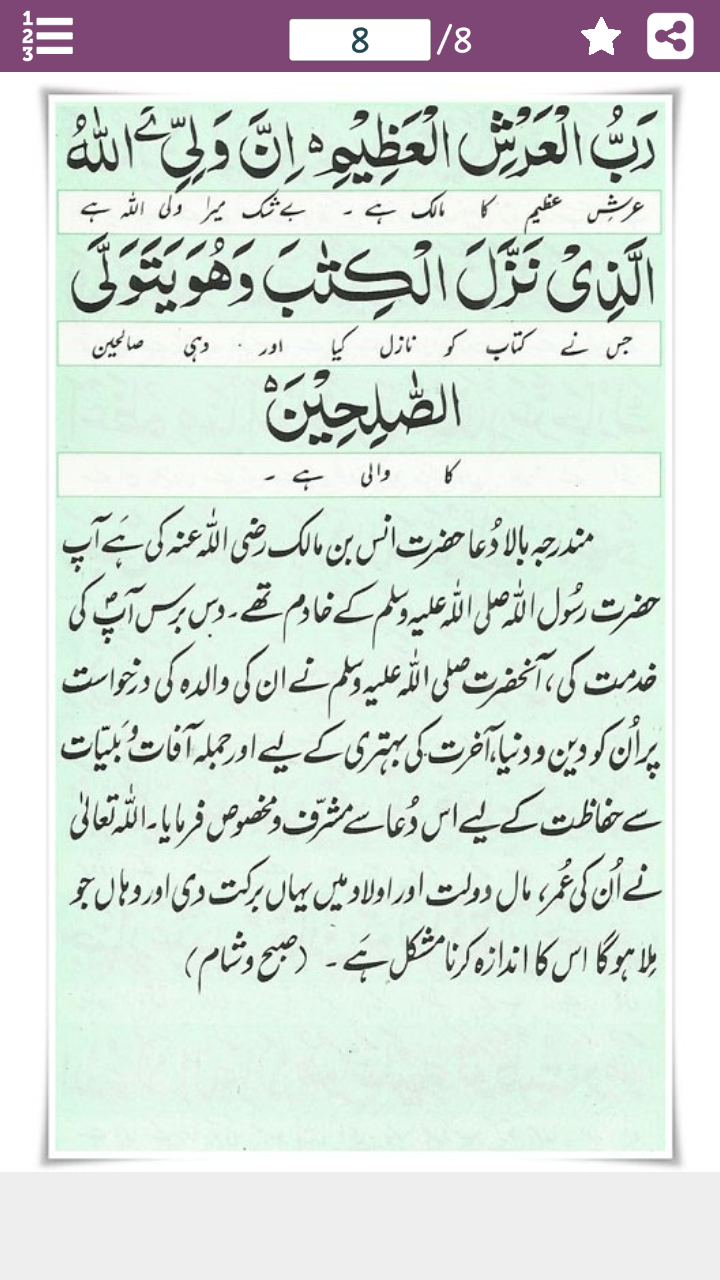 8 /8
رَبُّ الْعَرْشِ الْعَظِيْمِ ہ اِنَّ وَلِيِّ ےَ اللّٰهُ
عرشِ عظیم کا مالک ہے ۔ بے شک میرا ولی اللہ ہے
الَّذِىْ نَزَّلَ الْكِتٰبَ وَهُوَ يَتَوَلَّى
جس نے کتاب کو نازل کیا اور وہی صالحین
الصّٰلِحِيْنَ ہ
کا والی ہے ۔
مندرجہ بالا دُعا حضرت انس بن مالک رضی اللہ عنہ کی ہَے آپ
حضرت رسُول اللہ صلی اللہ علیہ وسلم کے خادم تھے۔ دس برس آپؐ کی
خدمت کی، آنحضرت صلی اللہ علیہ وسلم نے ان کی والدہ کی درخواست
پر اُن کو دین و دنیا، آخرت کی بہتری کے لیے اور جملہ آفات وَ بَلیّات
سے حفاظت کے لیے اس دُعا سے مشرّف و مخصوص فرمایا۔ اللہ تعالیٰ
نے اُن کی عُمر، مال دولت اور اولاد میں یہاں برکت دی اور وہاں جو
مِلا ہو گا اس کا اندازہ کرنا مشکل ہَے ۔ (صبح و شام)